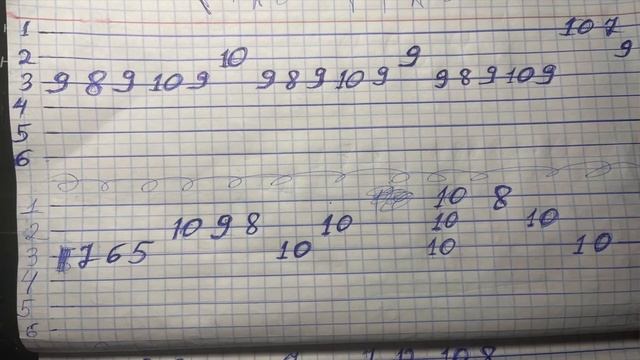 1 10 7
2 10 9 9
3 9 8 9 10 9 9 8 9 10 9 9 8 9 10 9
4
5
6
1 10 8
2 10 9 8 10 10 10
3 7 6 5 10 10 10
4
5
6